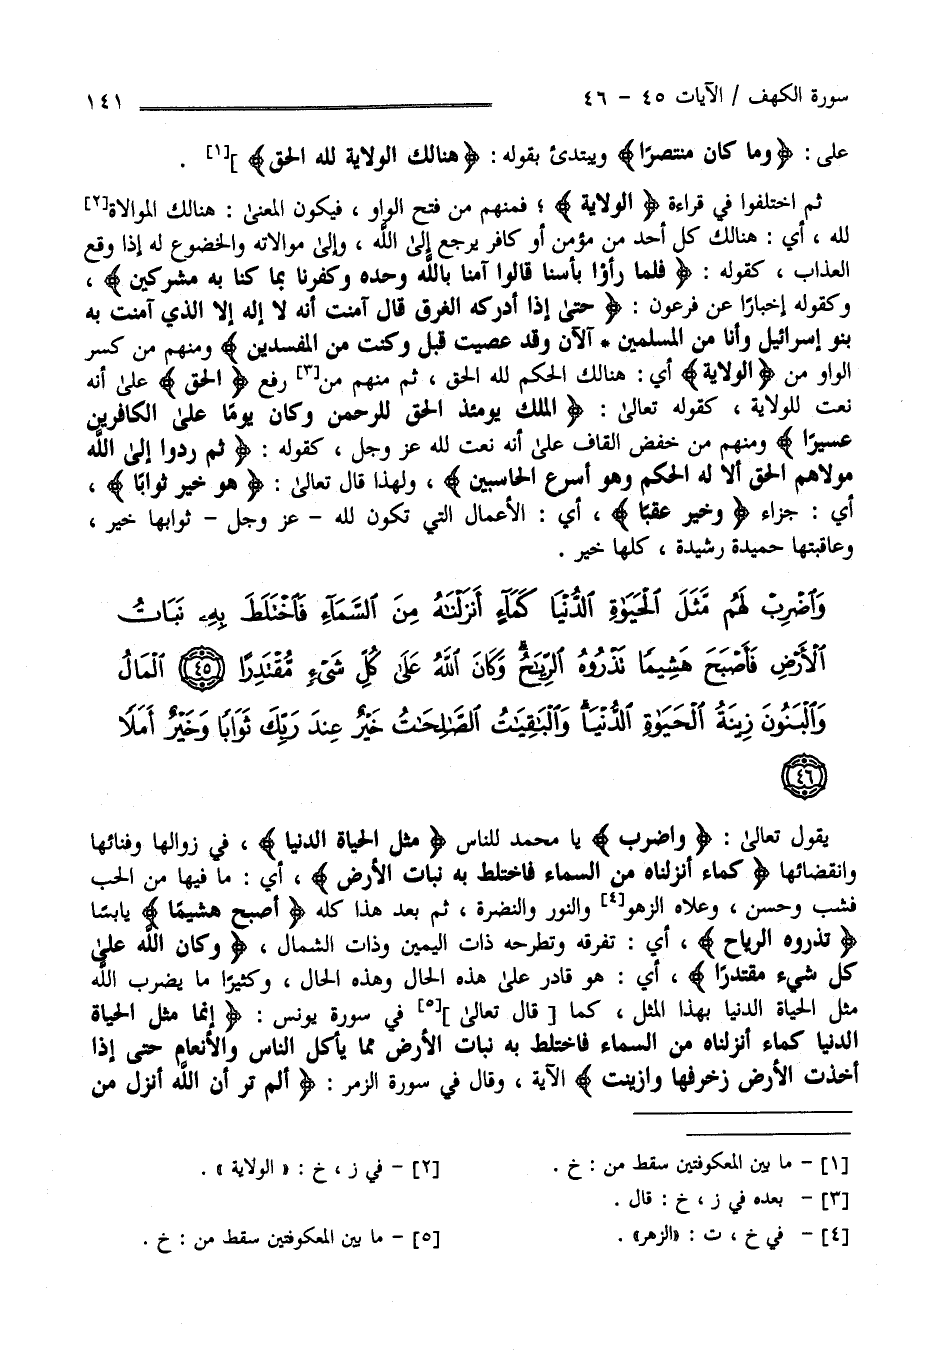 سورة الكهف / الآيات ٤٥ - ٤٦ ١٤١
على : ﴿ وما كان منتصرًا ﴾ ويبتدئ بقوله : ﴿ هنالك الولاية لله الحق ﴾ ][١] .
ثم اختلفوا في قراءة ﴿ الولاية ﴾ ؛ فمنهم من فتح الواو ، فيكون المعنى : هنالك الموالاة[٢]
لله ، أي : هنالك كل أحد من مؤمن أو كافر يرجع إلى الله ، وإلى موالاته والخضوع له إذا وقع
العذاب ، كقوله : ﴿ فلما رأوا بأسنا قالوا آمنا بالله وحده وكفرنا بما كنا به مشركين ﴾ ،
وكقوله إخبارًا عن فرعون : ﴿ حتى إذا أدركه الغرق قال آمنت أنه لا إله إلا الذي آمنت به
بنو إسرائيل وأنا من المسلمين * آلآن وقد عصيت قبل وكنت من المفسدين ﴾ ومنهم من كسر
الواو من ﴿ الولاية ﴾ أي : هنالك الحكم لله الحق ، ثم منهم من[٣] رفع ﴿ الحق ﴾ على أنه
نعت للولاية ، كقوله تعالى : ﴿ الملك يومئذ الحق للرحمن وكان يومًا على الكافرين
عسيرًا ﴾ ومنهم من خفض القاف على أنه نعت لله عز وجل ، كقوله : ﴿ ثم ردوا إلى الله
مولاهم الحق ألا له الحكم وهو أسرع الحاسبين ﴾ ، ولهذا قال تعالى : ﴿ هو خير ثوابًا ﴾ ،
أي : جزاء ﴿ وخير عقبًا ﴾ ، أي : الأعمال التي تكون لله - عز وجل - ثوابها خير ،
وعاقبتها حميدة رشيدة ، كلها خير .
وَاضْرِبْ لَهُم مَّثَلَ الْحَيَوٰةِ الدُّنْيَا كَمَآءٍ أَنزَلْنَٰهُ مِنَ السَّمَآءِ فَاخْتَلَطَ بِهِۦ نَبَاتُ
الْأَرْضِ فَأَصْبَحَ هَشِيمًا تَذْرُوهُ الرِّيَٰحُ وَكَانَ اللَّهُ عَلَىٰ كُلِّ شَىْءٍ مُّقْتَدِرًا ٤٥ الْمَالُ
وَالْبَنُونَ زِينَةُ الْحَيَوٰةِ الدُّنْيَا وَالْبَٰقِيَٰتُ الصَّٰلِحَٰتُ خَيْرٌ عِندَ رَبِّكَ ثَوَابًا وَخَيْرٌ أَمَلًا
٤٦
يقول تعالى : ﴿ واضرب ﴾ يا محمد للناس ﴿ مثل الحياة الدنيا ﴾ ، في زوالها وفنائها
وانقضائها ﴿ كماء أنزلناه من السماء فاختلط به نبات الأرض ﴾ ، أي : ما فيها من الحب
فشب وحسن ، وعلاه الزهو[٤] والنور والنضرة ، ثم بعد هذا كله ﴿ أصبح هشيمًا ﴾ يابسًا
﴿ تذروه الرياح ﴾ ، أي : تفرقه وتطرحه ذات اليمين وذات الشمال ، ﴿ وكان الله على
كل شيء مقتدرًا ﴾ ، أي : هو قادر على هذه الحال وهذه الحال ، وكثيرًا ما يضرب الله
مثل الحياة الدنيا بهذا المثل ، كما [ قال تعالى ][٥] في سورة يونس : ﴿ إنما مثل الحياة
الدنيا كماء أنزلناه من السماء فاختلط به نبات الأرض مما يأكل الناس والأنعام حتى إذا
أخذت الأرض زخرفها وازينت ﴾ الآية ، وقال في سورة الزمر : ﴿ ألم تر أن الله أنزل من
[١] - ما بين المعكوفتين سقط من : خ . [٢] - في ز ، خ : « الولاية » .
[٣] - بعده في ز ، خ : قال .
[٤] - في خ ، ت : «الزهر» . [٥] - ما بين المعكوفتين سقط من : خ .